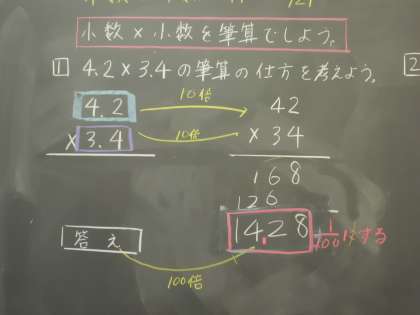 小数×小数を筆算でしよう。
1 4.2×3.4の筆算の仕方を考えよう。
2
4.2 10倍 42
×3.4 10倍 ×34
168
126
答え 14.28 1/100にする
100倍